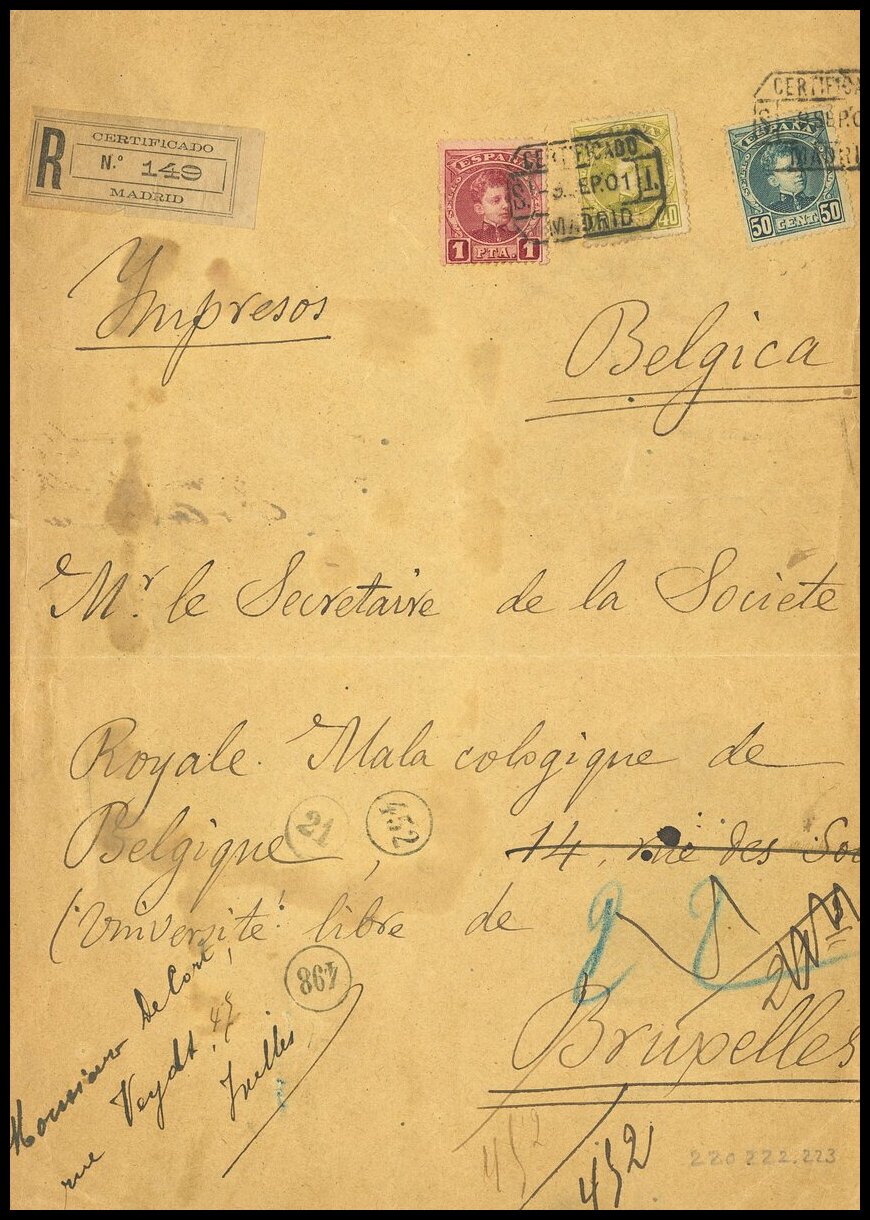 R
CERTIFICADO
N.º 149
MADRID
ESPAÑA
1 PTA. 1
CERTIFICADO
SEP.01
MADRID
40
CERTIFICA
SEP.0
MADRI
ESPAÑA
50 CENT 50
Impresos
Belgica
Mr. le Secretaire de la Societé
Royale Malacologique de
Belgique,
21
452
14, rue des
(Université libre de
Bruxelles
498
Monsieur De Cort,
rue Veydt, 45
Ixelles
452
452
220 222.223